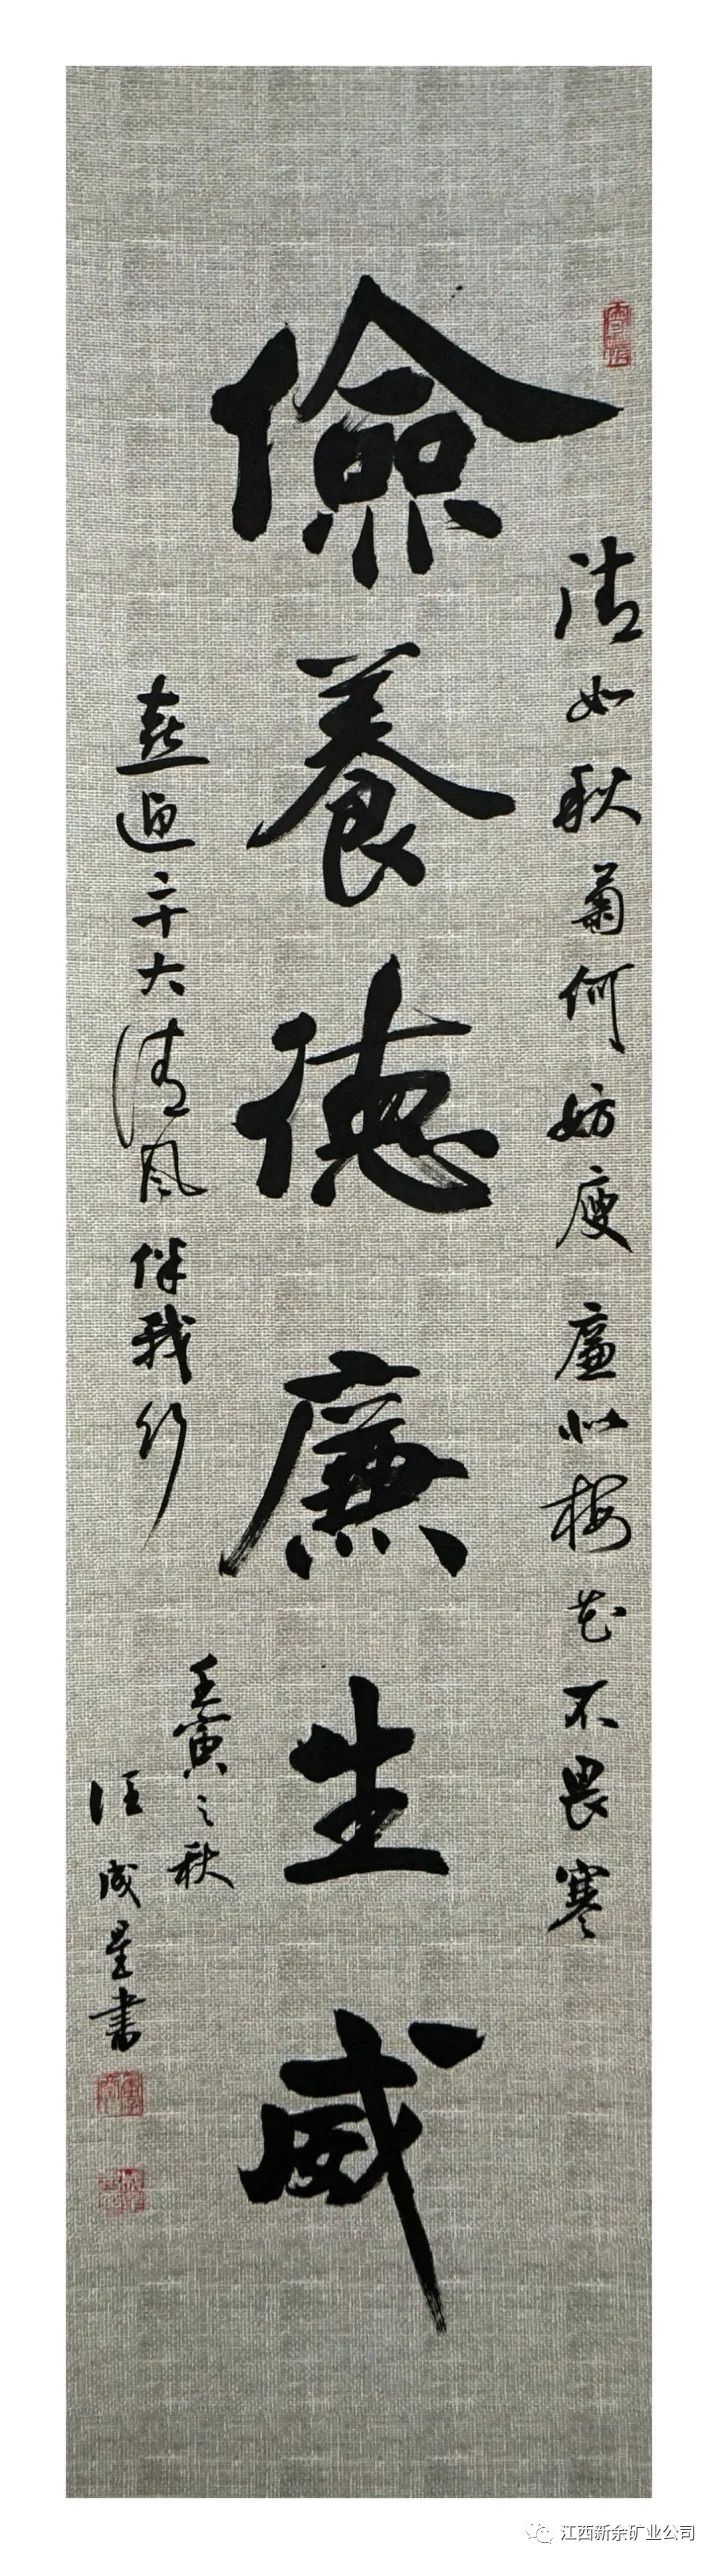 清如秋菊何妨瘦廉似梅花不畏寒
儉養德廉生威
喜迎二十大清风伴我行
壬寅之秋
汪成星書
江西新余矿业公司